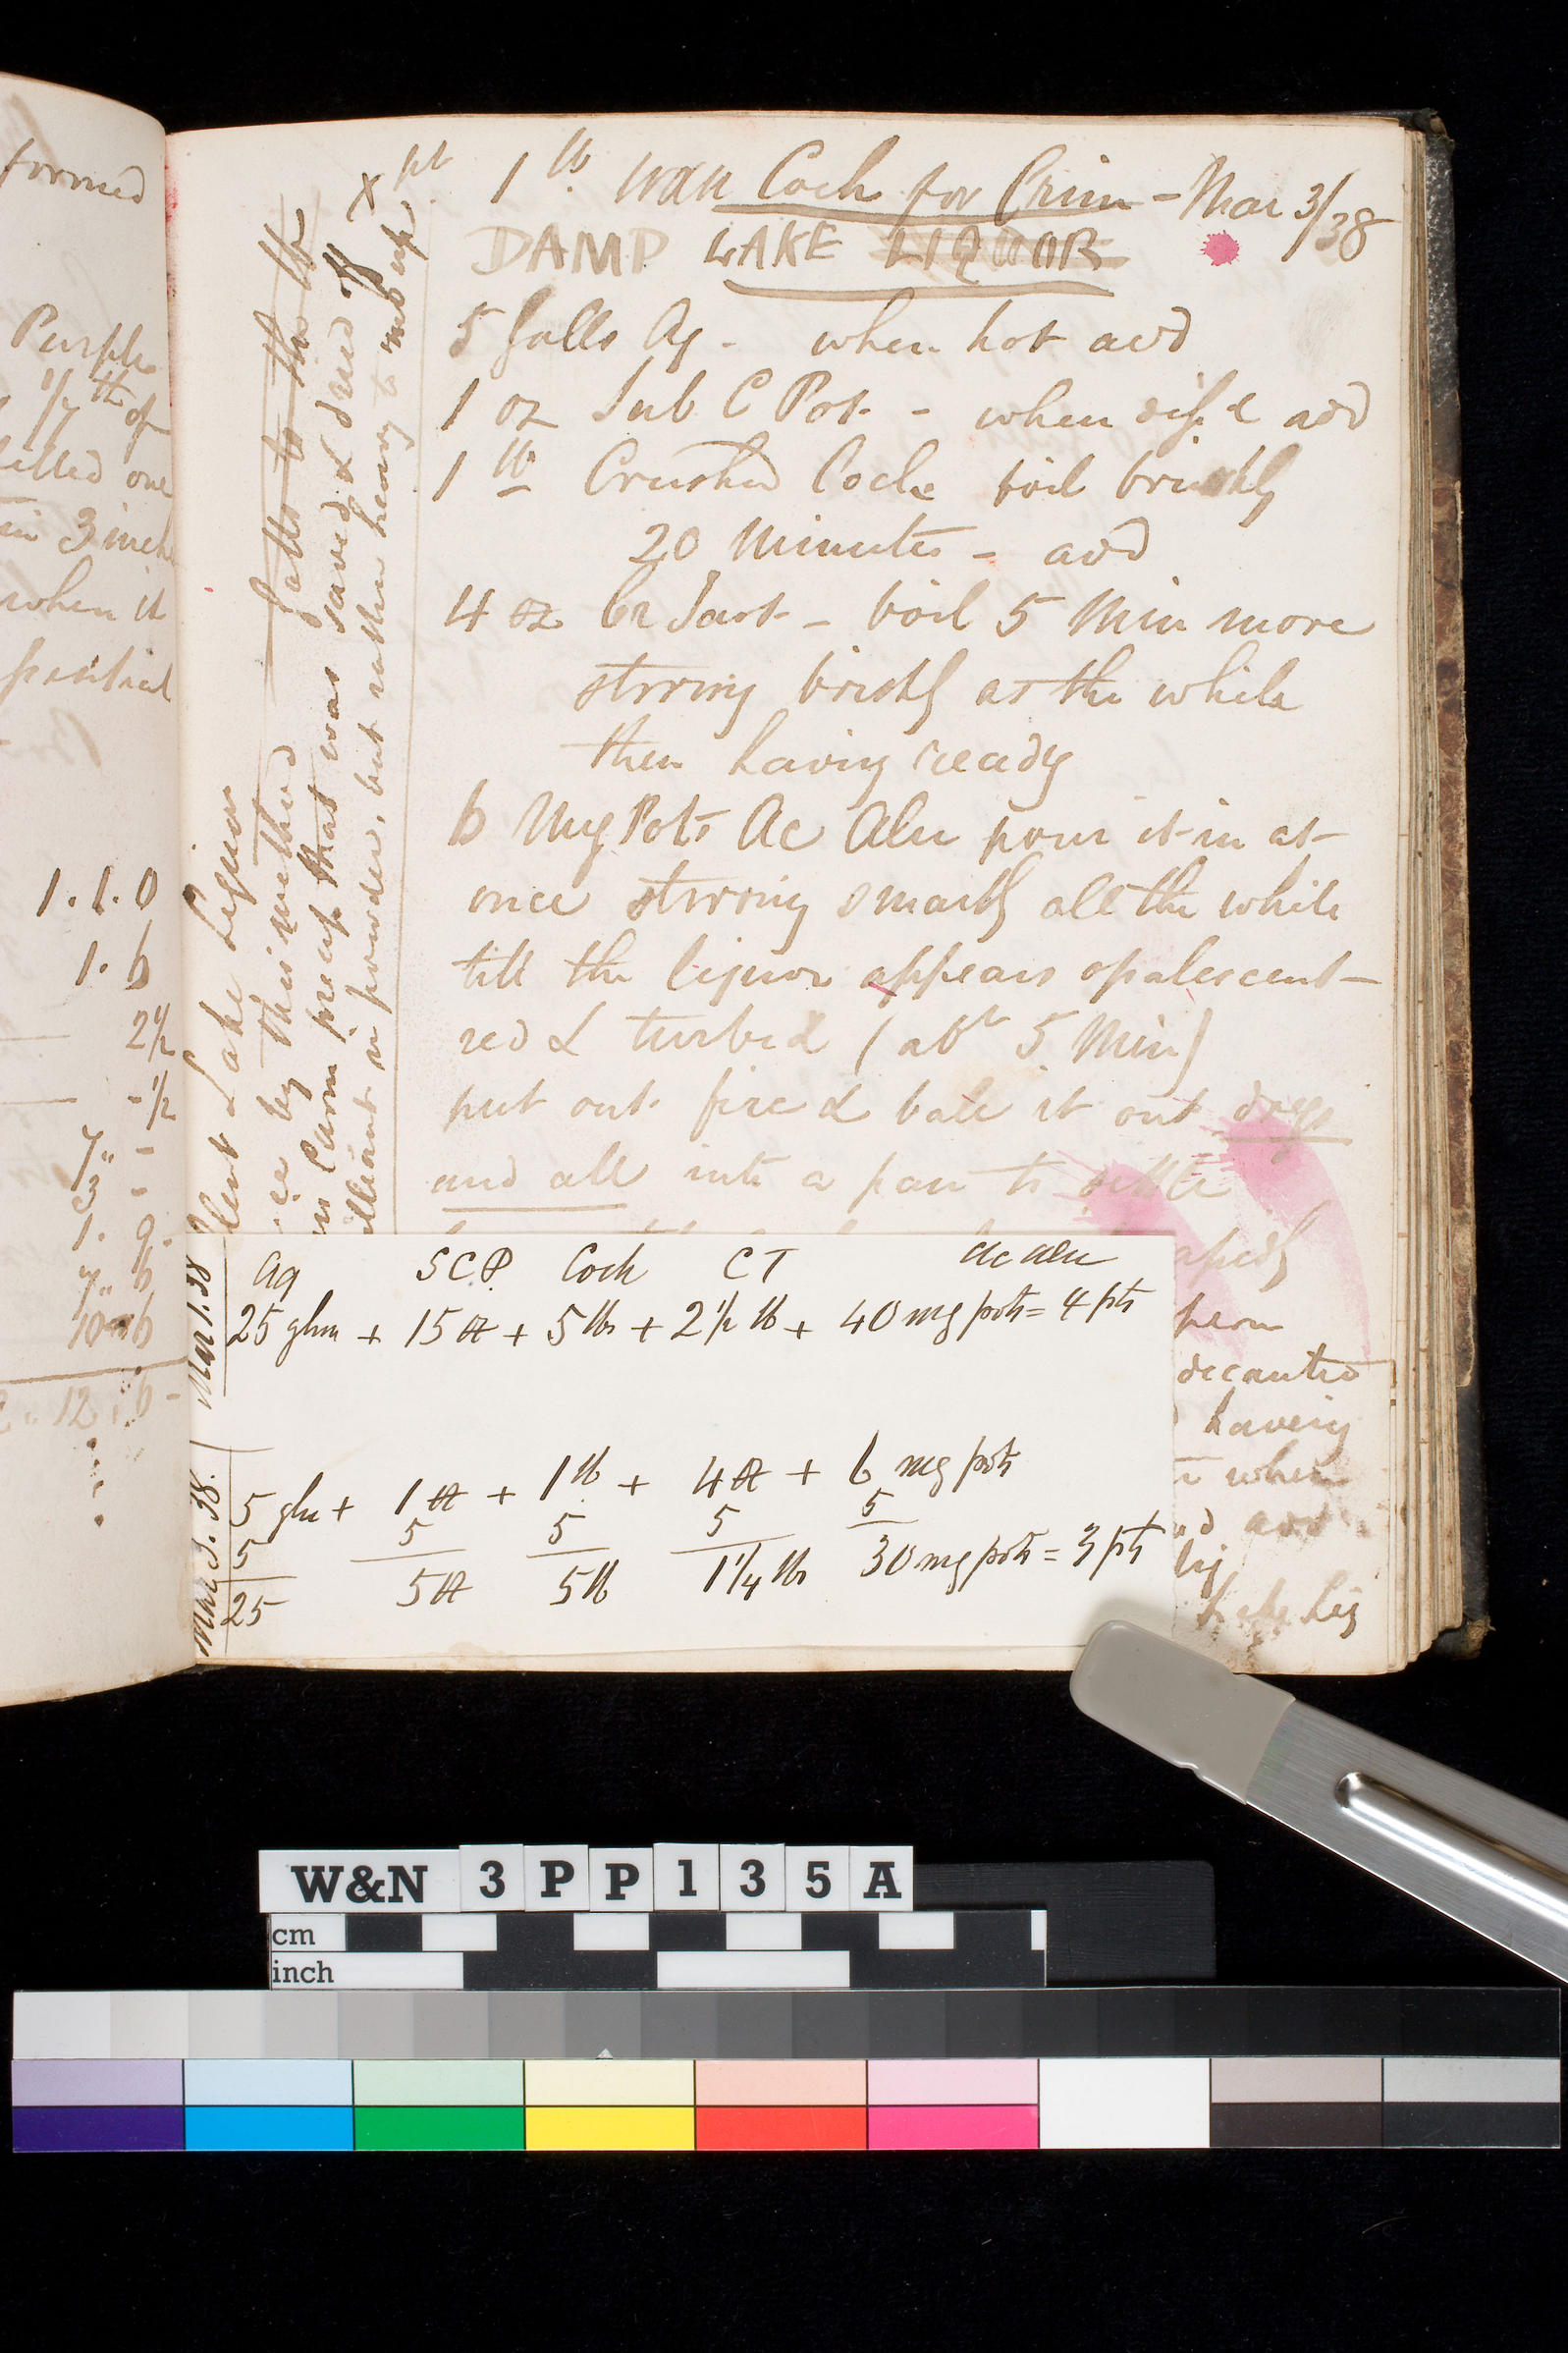 formed
Purple
1/7th of
one
in 3 inch
when it
1.1.0
1. 6
2 1/2
- 1/2
7" -
3 -
1. 9.
7" 6
10 6
12 " 6 -
galls to the lb
Lake Liquor
by this method
Carm precip that was saved & dried off
in powder, but rather heavy to rub up
x pt
1 lb. Coch for Crim - Mar 3/38
DAMP LAKE LIQUOR
5 galls Aq - when hot add
1 oz Sub C Pot - when add
1 lb Crushd Coche boil briskly
20 Minutes - add
4 oz Cr Tart - boil 5 Min more
strring briskly at the while
then having ready
6 Mug Pots Ac Alu pour it in at
once strring smartly all the while
till the liquor appears opalescent
red & turbid (abt 5 Min)
put out fire & bale it out dregs
and all into a pan to settle
decanted
having
when
add
liq
lake liq
Mar 1. 38
Aq SCP Coch CT Ac Alu
25 glns + 15 oz + 5 lbs + 2 1/2 lb + 40 mg pots = 4 pts
Mar 3. 38.
5 gln + 1 oz + 1 lb + 4 oz + 6 mg pots
5 5 5 5 5
25 5 oz 5 lb 1 1/4 lbs 30 mg pots = 3 pts
W&N 3PP135A
cm
inch